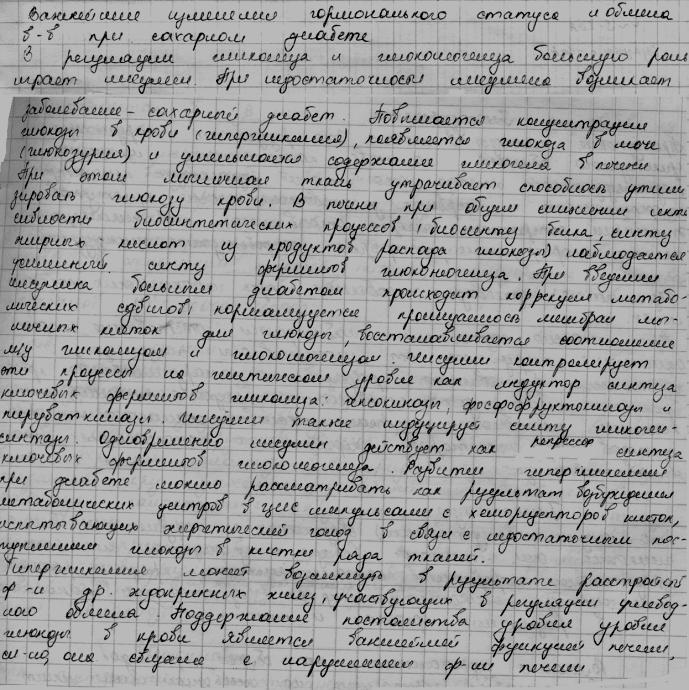 Важнейшие изменения гормонального статуса и обмена
в-в при сахарном диабете
В регуляции гликолиза и глюконеогенеза большую роль
играет инсулин. При недостаточности инсулина возникает
заболевание - сахарный диабет. Повышается концентрация
глюкозы в крови (гипергликемия), появляется глюкоза в моче
(глюкозурия) и уменьшается содержание гликогена в печени
При этом мышечная ткань утрачивает способность утили
зировать глюкозу крови. В печени при общем снижении интен
сивности биосинтетических процессов (биосинтез белка, синтез
жирных кислот из продуктов распада глюкозы) наблюдается
усиленный синтез ферментов глюконеогенеза. При введении
инсулина больным диабетом происходит коррекция метабо-
лических сдвигов: нормализуется проницаемость мембран мы-
шечных клеток для глюкозы, восстанавливается соотношение
м/у гликолизом и глюконеогенезом. Инсулин контролирует
эти процессы на генетическом уровне как индуктор синтеза
ключевых ферментов гликолиза: гексокиназы, фосфофруктокиназы и
пируваткиназы. Инсулин также индуцирует синтез гликоген-
синтазы. Одновременно инсулин действует как репрессор синтеза
ключевых ферментов глюконеогенеза. Развитие гипергликемии
при диабете можно рассматривать как результат возбуждения
метаболических центров в ЦНС импульсами с хеморецепторов клеток,
испытывающих энергетический голод в связи с недостаточным пос-
туплением глюкозы в клетки ряда тканей.
Гипергликемия может возникнуть в результате расстройств
ф-и др. эндокринных желез, участвующих в регуляции углевод-
ного обмена. Поддержание постоянства уровня уровня
глюкозы в крови является важнейшей функцией печени,
она связана с нарушением ф-ии печени.